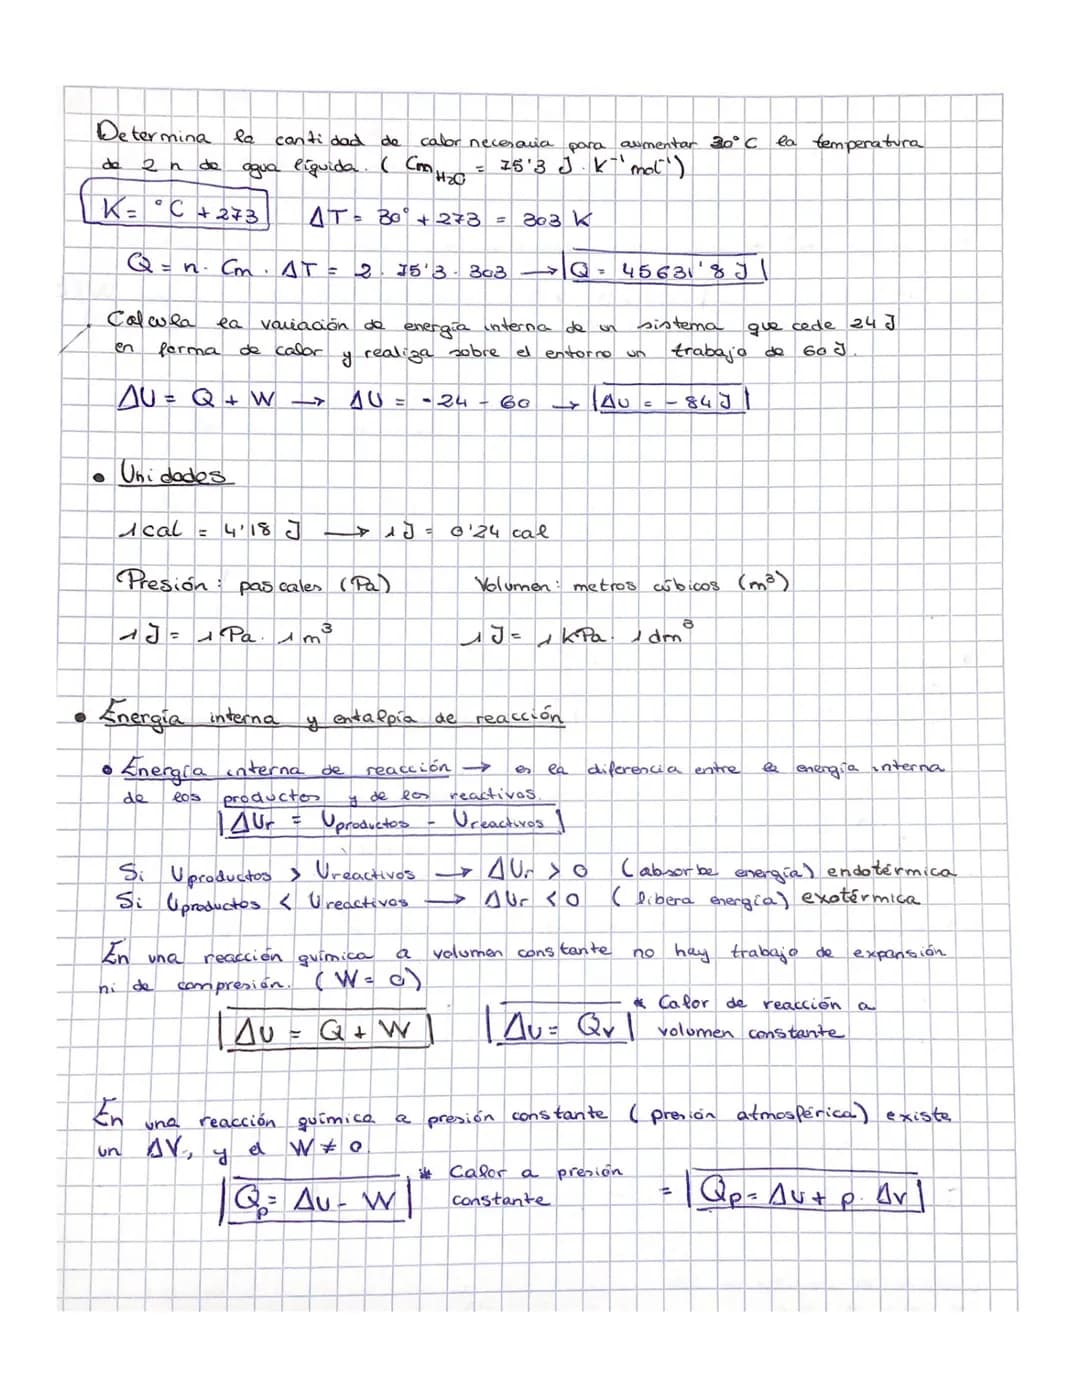 Determina la cantidad de calor necesaria para aumentar 30°C la temperatura
de 2 n de agua líquida. ( Cm H2O = 75'3 J. K⁻¹ mol⁻¹)
K = °C + 273 ΔT = 30° + 273 = 303 K
Q = n. Cm . ΔT = 2. 75'3. 303 → Q = 45631'8 J
Calcula la variación de energía interna de un sistema que cede 24 J
en forma de calor y realiza sobre el entorno un trabajo de 60 J.
ΔU = Q + W → ΔU = -24 - 60 → ΔU = - 84 J
• Unidades
1 cal = 4'18 J → 1 J = 0'24 cal
Presión: pascales (Pa) Volumen: metros cúbicos (m³)
1 J = 1 Pa. 1 m³ 1 J = 1 kPa. 1 dm³
• Energía interna y entalpía de reacción
• Energía interna de reacción → es la diferencia entre la energía interna
de los productos y de los reactivos.
ΔUr = Uproductos - Ureactivos
Si Uproductos > Ureactivos → ΔUr > 0 (absorbe energía) endotérmica
Si Uproductos < Ureactivos → ΔUr < 0 (libera energía) exotérmica
En una reacción química a volumen constante no hay trabajo de expansión
ni de compresión. (W = 0)
* Calor de reacción a
ΔU = Q + W ΔU = Qv volumen constante
En una reacción química a presión constante (presión atmosférica) existe
un ΔV, y el W ≠ 0.
* Calor a presión
Qp = ΔU - W constante = Qp = ΔU + p. ΔV